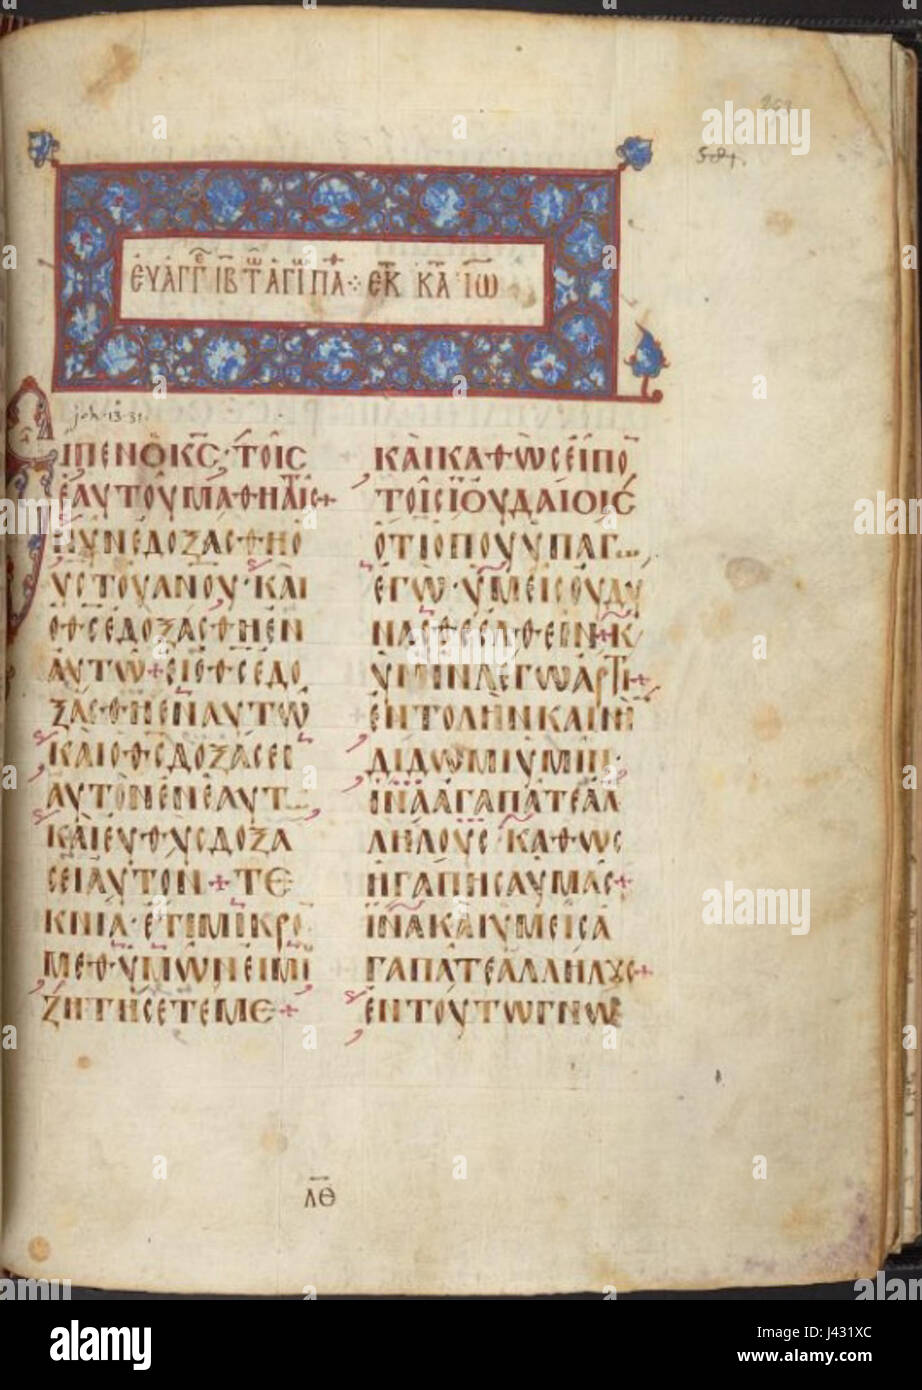 584.
ΕΥΑΓΓΕ ΙΒ ΤΩ ΑΓΙ ΠΑ ⁘ ΕΚ Τ ΚΑΤ ΙΩ
joh. 13. 31.
ΙΠΕΝ Ο ΚΣ · ΤΟΙΣ
ΕΑΥΤΟΥ ΜΑΘΗΤΑΙΣ +
ΝΥΝ ΕΔΟΞΑΣΘΗ Ο
ΥΣ ΤΟΥ ΑΝΟΥ · ΚΑΙ
Ο ΘΣ ΕΔΟΞΑΣΘΗ ΕΝ
ΑΥΤΩ + ΕΙ Ο ΘΣ ΕΔΟ
ΞΑΣΘΗ ΕΝ ΑΥΤΩ
ΚΑΙ Ο ΘΣ ΔΟΞΑΣΕΙ
ΑΥΤΟΝ ΕΝ ΕΑΥΤ
ΚΑΙ ΕΥΘΥΣ ΔΟΞΑ
ΣΕΙ ΑΥΤΟΝ + ΤΕ
ΚΝΙΑ · ΕΤΙ ΜΙΚΡΟ
ΜΕΘ ΥΜΩΝ ΕΙΜΙ
ΖΗΤΗΣΕΤΕ ΜΕ +
ΚΑΙ ΚΑΘΩΣ ΕΙΠΟ
ΤΟΙΣ ΙΟΥΔΑΙΟΙΣ
ΟΤΙ ΟΠΟΥ ΥΠΑΓ
ΕΓΩ · ΥΜΕΙΣ ΟΥ ΔΥ
ΝΑΣΘΕ ΕΛΘΕΙΝ + Κ
ΥΜΙΝ ΛΕΓΩ ΑΡΤΙ +
ΕΝΤΟΛΗΝ ΚΑΙΝΗ
ΔΙΔΩΜΙ ΥΜΙΝ ·
ΙΝΑ ΑΓΑΠΑΤΕ ΑΛ
ΛΗΛΟΥΣ · ΚΑΘΩΣ
ΗΓΑΠΗΣΑ ΥΜΑΣ +
ΙΝΑ ΚΑΙ ΥΜΕΙΣ Α
ΓΑΠΑΤΕ ΑΛΛΗΛΟΥΣ +
ΕΝ ΤΟΥΤΩ ΓΝΩ
ΛΘ
alamy
Image ID: J431XC
www.alamy.com